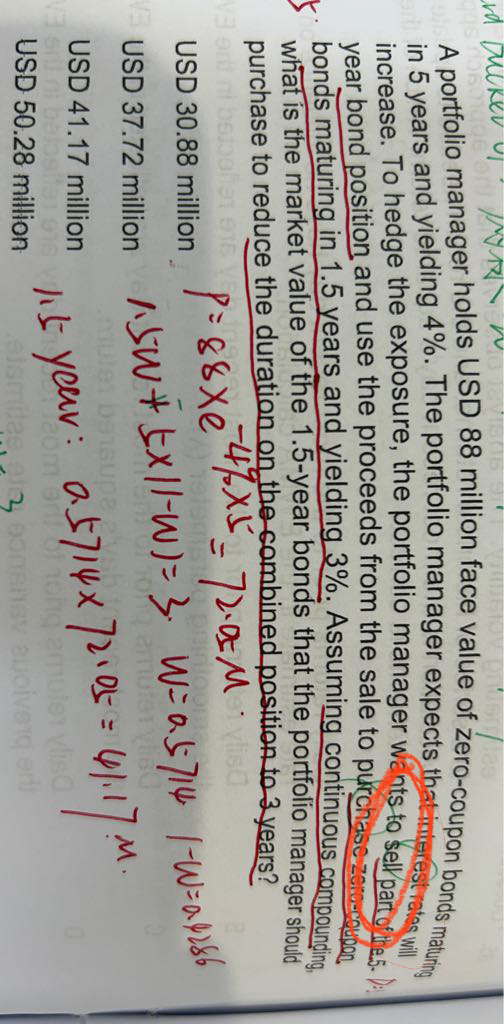 A portfolio manager holds USD 88 million face value of zero-coupon bonds maturing
in 5 years and yielding 4%. The portfolio manager expects that interest rates will
increase. To hedge the exposure, the portfolio manager wants to sell part of the 5-
year bond position and use the proceeds from the sale to purchase zero-coupon
bonds maturing in 1.5 years and yielding 3%. Assuming continuous compounding,
what is the market value of the 1.5-year bonds that the portfolio manager should
purchase to reduce the duration on the combined position to 3 years?
USD 30.88 million
USD 37.72 million
USD 41.17 million
USD 50.28 million
P=88×e^-4%×5=72.05M.
1.5W+5×(1-W)=3. W=0.5714 1-W=0.4286
1.5 year: 0.5714×72.05=41.17M.